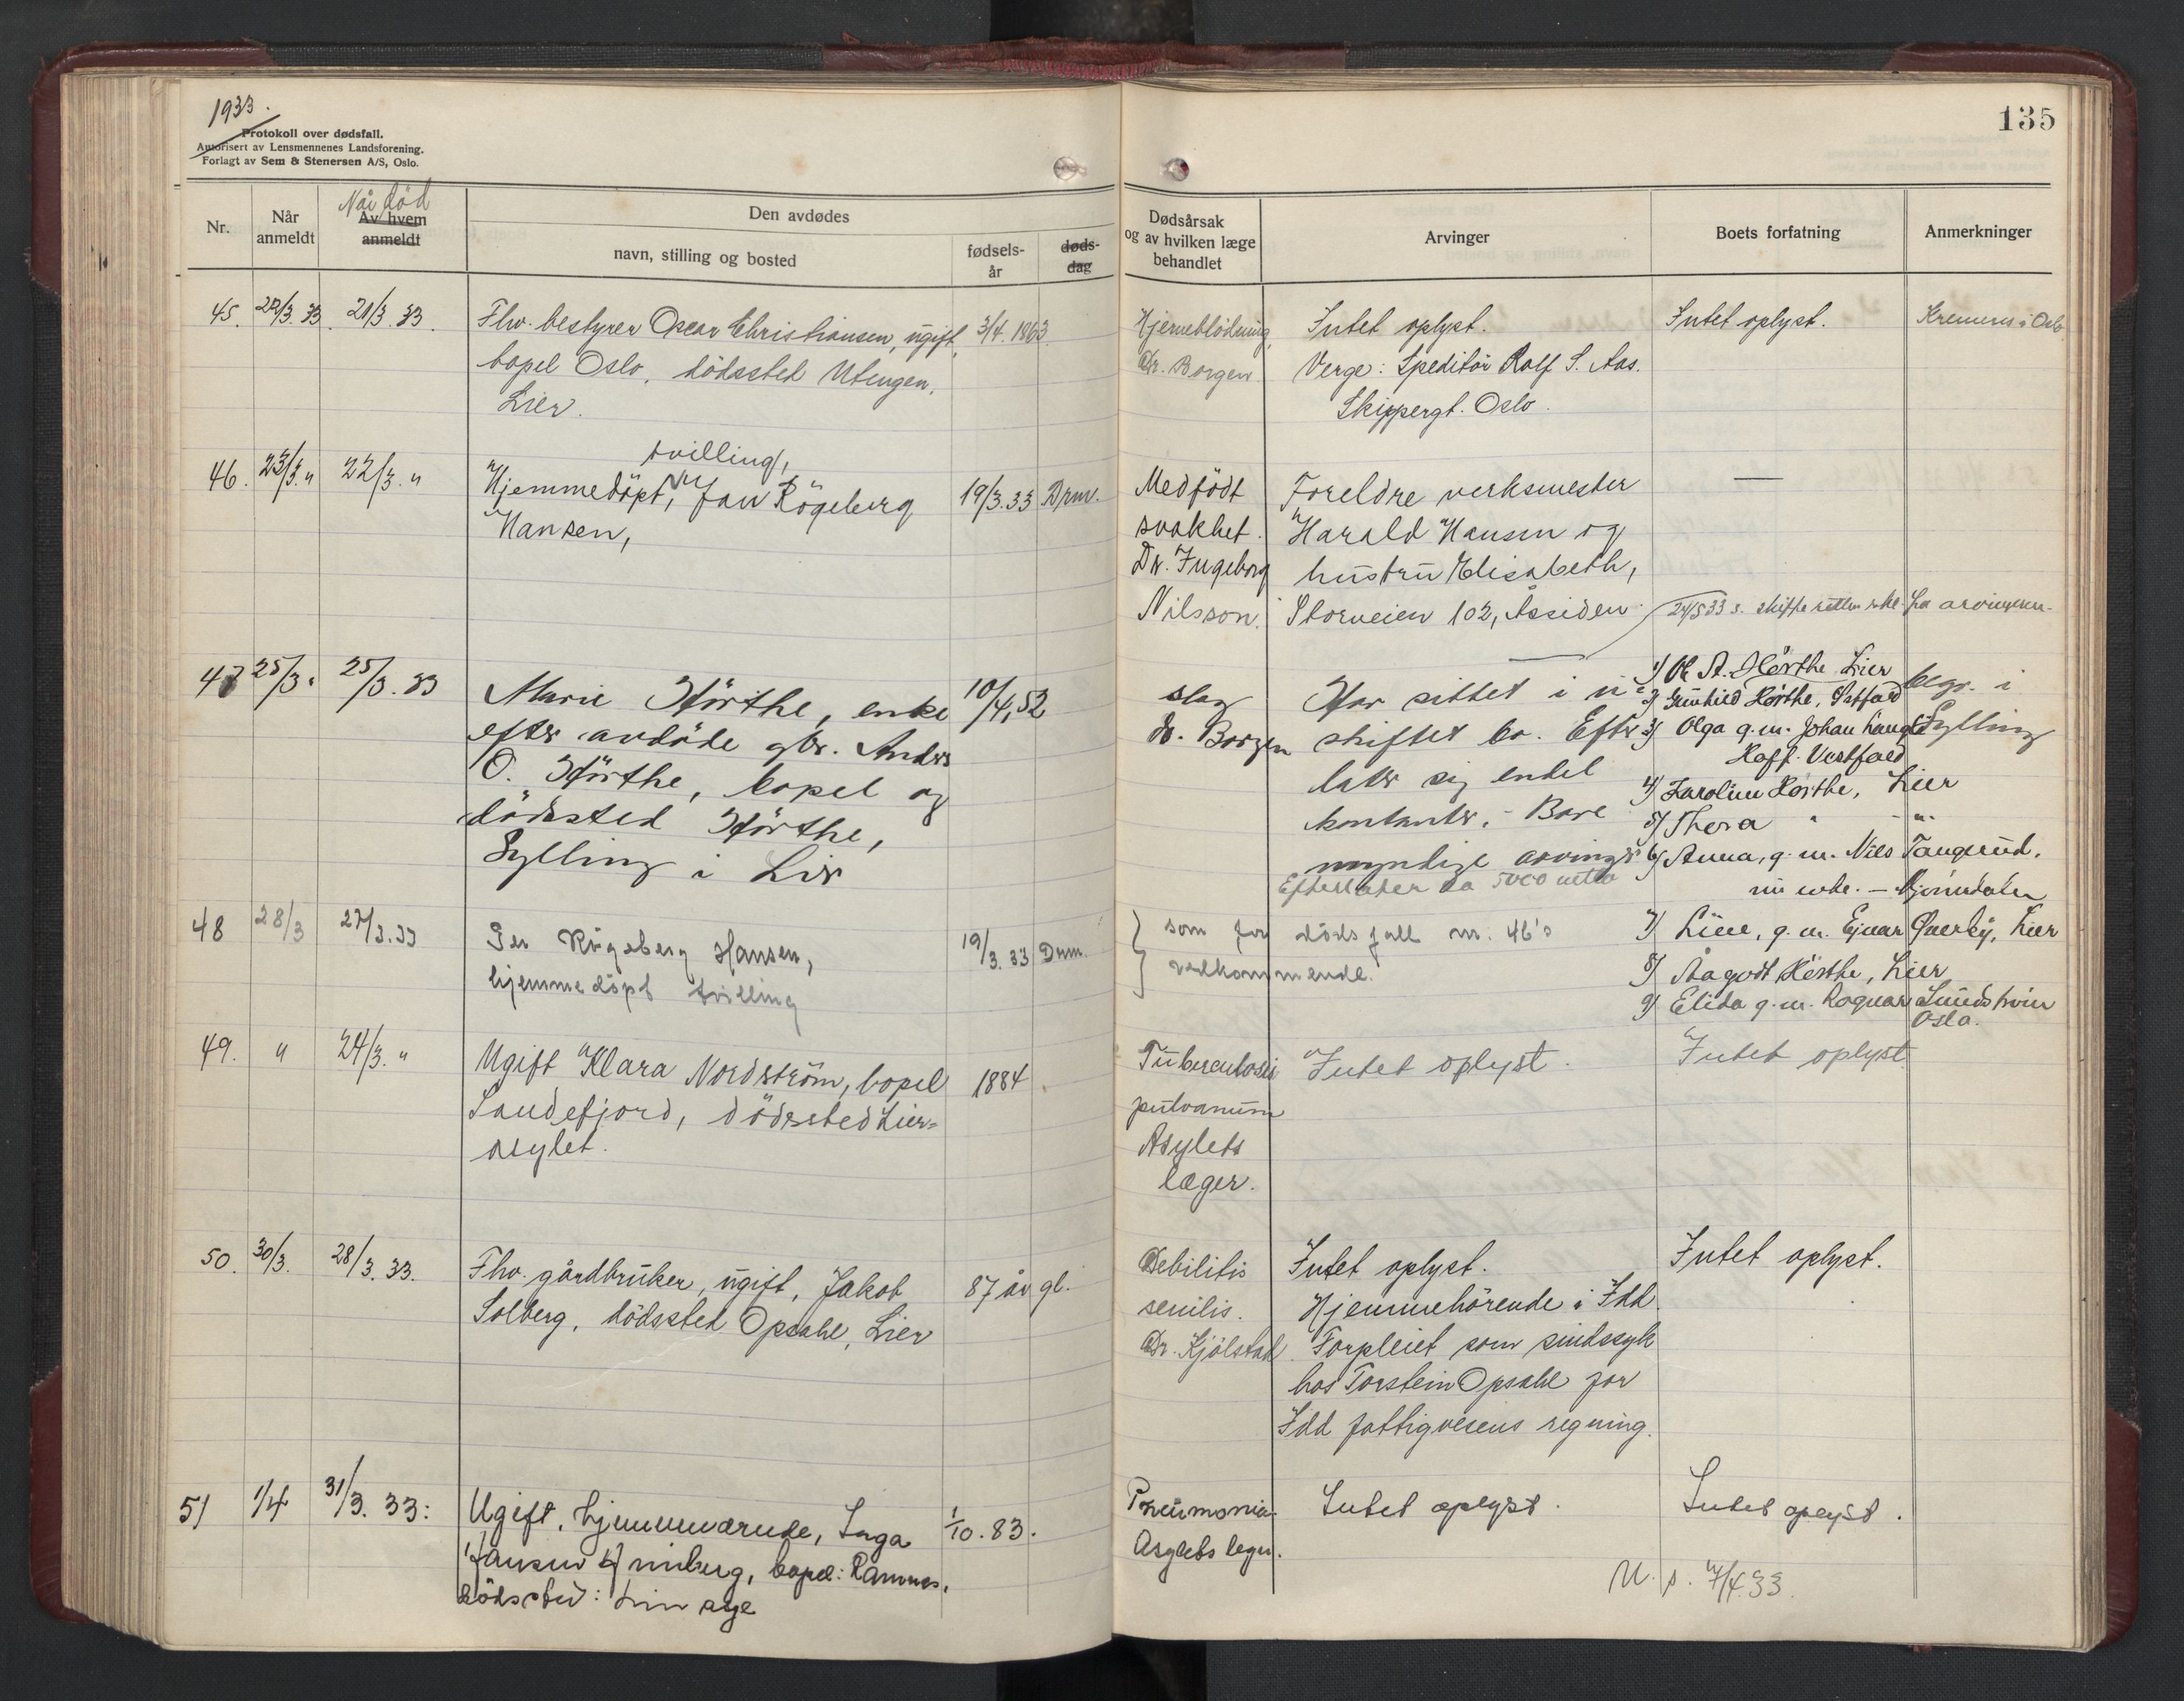 1933.
Protokoll over dødsfall.
Autorisert av Lensmennenes Landsforening.
Forlagt av Sem & Stenersen A/S, Oslo.
135
Nr.
Når anmeldt
Når død
Av hvem anmeldt
Den avdødes
navn, stilling og bosted
fødsels-år
døds-dag
Dødsårsak og av hvilken læge behandlet
Arvinger
Boets forfatning
Anmerkninger
45. 22/3. 33. 21/3. 33. Fhv. bestyrer Oscar Christiansen, ugift, 3/4. 1863.
bopel Oslo, dödssted Utengen,
Lier.
Hjerneblödning,
Dr. Borgen.
Intet oplyst.
Verge: Speditör Rolf S. Aas.
Skippergt. Oslo.
Intet oplyst.
Kremeres i Oslo
46. 23/3. " 22/3. " tvilling,
Hjemmedöpt, Jan Rögeberg 19/3. 33 Drm.
Hansen,
Medfödt
svakhet.
Dr. Ingeborg
Nilsson.
Foreldre verksmester
Harald Hansen og
hustru Elisabeth,
Storveien 102, Åssiden.
—
47 25/3. 25/3. 33 Marie Hörthe, enke 10/4, 52
efter avdöde gbr. Anders
O. Hörthe, bopel og
dödssted Hörthe,
Sylling i Lier
slag
dr. Borgen
Har sittet i u-
skiftet bo. Efter-
later sig endel
kontanter. - Bare
myndige arvinger
Efterlater ca 5000 netto
24/5 33 s. skifteretten
fra arvingene
1) A. Hörthe Lier
2) Gunhild Hörthe, Vestfold
3) Olga g.m. Johan
Hoff. Vestfold
4) Karoline Hörthe, Lier
5) Thora " - " -
6) Anna, g.m. Nils Tangerud.
nu enke. — Mjöndalen
7) Line, g.m. Ejnar Överby, Lier
8) Aagodt Hörthe, Lier
9) Elida g.m. Ragnar Lundstrøm
Oslo.
begr. i
Sylling
48 28/3 27/3. 33 Per Rögeberg Hansen, 19/3. 33 Drm.
hjemmedöpt tvilling
som for dödsfall nr. 46's
vedkommende.
49. " 24/3. " Ugift Klara Nordström, bopel 1884.
Sandefjord, dödssted Lier-
asylet.
Tuberculosis
pulmonum
Asylets
læger.
Intet oplyst.
Intet oplyst
50. 30/3. 28/3. 33. Fhv. gårdbruker, ugift, Jakob 87 år gl.
Solberg, dödssted Opsahl, Lier
Debilitis
senilis.
Dr. Kjölstad
Intet oplyst.
Hjemmehörende i Idd.
Forpleiet som sindssyk
hos Torstein Opsahl for
Idd fattigvesens regning.
Intet oplyst.
51 1/4 31/3. 33: Ugift, hjemmeværende, Inga 1/10. 83.
bopel: Ramnes,
dödssted: Lier asyl
Pneumonia.
Asylets leger.
Intet oplyst.
Intet oplyst.
U. s. 7/4. 33.